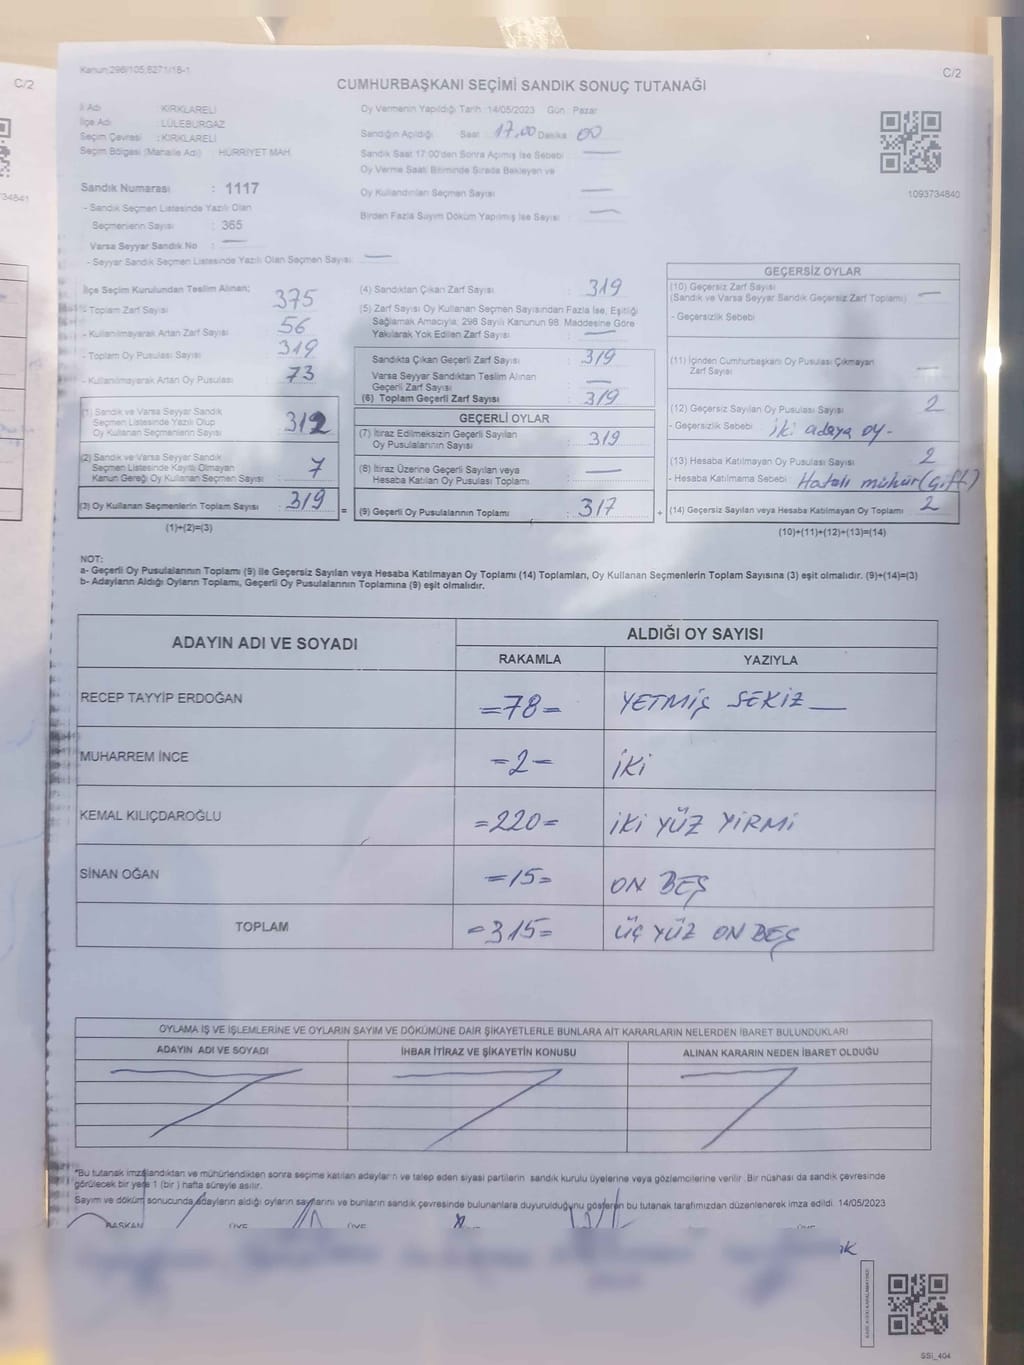 C/2
34841
Kanun:298/105;6271/18-1
C/2
CUMHURBAŞKANI SEÇİMİ SANDIK SONUÇ TUTANAĞI
İl Adı : KIRKLARELİ
İlçe Adı : LÜLEBURGAZ
Seçim Çevresi : KIRKLARELİ
Seçim Bölgesi (Mahalle Adı) : HÜRRİYET MAH.
Oy Vermenin Yapıldığı Tarih :14/05/2023 Gün : Pazar
Sandığın Açıldığı Saat : 17.00 Dakika : 00
Sandık Saat 17:00'den Sonra Açımış İse Sebebi :
Oy Verme Saati Bitiminde Sırada Bekleyen ve
Oy Kullandırılan Seçmen Sayısı :
Birden Fazla Sayım Döküm Yapılmış İse Sayısı :
1093734840
Sandık Numarası : 1117
- Sandık Seçmen Listesinde Yazılı Olan
Seçmenlerin Sayısı : 365
Varsa Seyyar Sandık No :
- Seyyar Sandık Seçmen Listesinde Yazılı Olan Seçmen Sayısı:
İlçe Seçim Kurulundan Teslim Alınan;
- Toplam Zarf Sayısı : 375
- Kullanılmayarak Artan Zarf Sayısı : 56
- Toplam Oy Pusulası Sayısı : 319
- Kullanılmayarak Artan Oy Pusulası : 73
(1) Sandık ve Varsa Seyyar Sandık
Seçmen Listesinde Yazılı Olup
Oy Kullanan Seçmenlerin Sayısı : 312
(2) Sandık ve Varsa Seyyar Sandık
Seçmen Listesinde Kayıtlı Olmayan
Kanun Gereği Oy Kullanan Seçmen Sayısı : 7
(3) Oy Kullanan Seçmenlerin Toplam Sayısı : 319 =
(1)+(2)=(3)
(4) Sandıktan Çıkan Zarf Sayısı : 319
(5) Zarf Sayısı Oy Kullanan Seçmen Sayısından Fazla İse, Eşitliği
Sağlamak Amacıyla; 298 Sayılı Kanunun 98. Maddesine Göre
Yakılarak Yok Edilen Zarf Sayısı :
Sandıkta Çıkan Geçerli Zarf Sayısı : 319
Varsa Seyyar Sandıktan Teslim Alınan
Geçerli Zarf Sayısı :
(6) Toplam Geçerli Zarf Sayısı : 319
GEÇERLİ OYLAR
(7) İtiraz Edilmeksizin Geçerli Sayılan
Oy Pusulalarının Sayısı : 319
(8) İtiraz Üzerine Geçerli Sayılan veya
Hesaba Katılan Oy Pusulası Toplamı :
(9) Geçerli Oy Pusulalarının Toplamı : 317 +
GEÇERSİZ OYLAR
(10) Geçersiz Zarf Sayısı
(Sandık ve Varsa Seyyar Sandık Geçersiz Zarf Toplamı) :
- Geçersizlik Sebebi :
(11) İçinden Cumhurbaşkanı Oy Pusulası Çıkmayan
Zarf Sayısı :
(12) Geçersiz Sayılan Oy Pusulası Sayısı : 2
- Geçersizlik Sebebi : İki adaya oy-
(13) Hesaba Katılmayan Oy Pusulası Sayısı : 2
- Hesaba Katılmama Sebebi : Hatalı mühür (Çift)
(14) Geçersiz Sayılan veya Hesaba Katılmayan Oy Toplamı : 2
(10)+(11)+(12)+(13)=(14)
NOT:
a- Geçerli Oy Pusulalarının Toplamı (9) ile Geçersiz Sayılan veya Hesaba Katılmayan Oy Toplamı (14) Toplamları, Oy Kullanan Seçmenlerin Toplam Sayısına (3) eşit olmalıdır. (9)+(14)=(3)
b- Adayların Aldığı Oyların Toplamı, Geçerli Oy Pusulalarının Toplamına (9) eşit olmalıdır.
ADAYIN ADI VE SOYADI
ALDIĞI OY SAYISI
RAKAMLA YAZIYLA
RECEP TAYYİP ERDOĞAN =78= YETMİŞ SEKİZ
MUHARREM İNCE =2= İKİ
KEMAL KILIÇDAROĞLU =220= İKİ YÜZ YİRMİ
SİNAN OĞAN =15= ON BEŞ
TOPLAM =315= ÜÇ YÜZ ON BEŞ
OYLAMA İŞ VE İŞLEMLERİNE VE OYLARIN SAYIM VE DÖKÜMÜNE DAİR ŞİKAYETLERLE BUNLARA AİT KARARLARIN NELERDEN İBARET BULUNDUKLARI
ADAYIN ADI VE SOYADI İHBAR İTİRAZ VE ŞİKAYETİN KONUSU ALINAN KARARIN NEDEN İBARET OLDUĞU
*Bu tutanak imzalandıktan ve mühürlendikten sonra seçime katılan adayların ve talep eden siyasi partilerin sandık kurulu üyelerine veya gözlemcilerine verilir. Bir nüshası da sandık çevresinde
görülecek bir yere 1 (bir ) hafta süreyle asılır.
Sayım ve döküm sonucunda adayların aldığı oyların sayılarını ve bunların sandık çevresinde bulunanlara duyurulduğunu gösteren bu tutanak tarafımızdan düzenlenerek imza edildi. 14/05/2023
BAŞKAN ÜYE ÜYE ÜYE
SSİ_404